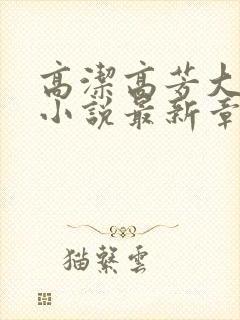 高潔高芳大
小說最新章
猫繫雲